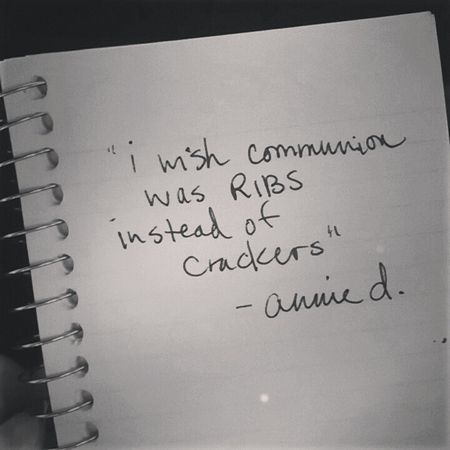 "i wish communion
was RIBS
instead of
crackers"
- annie d.